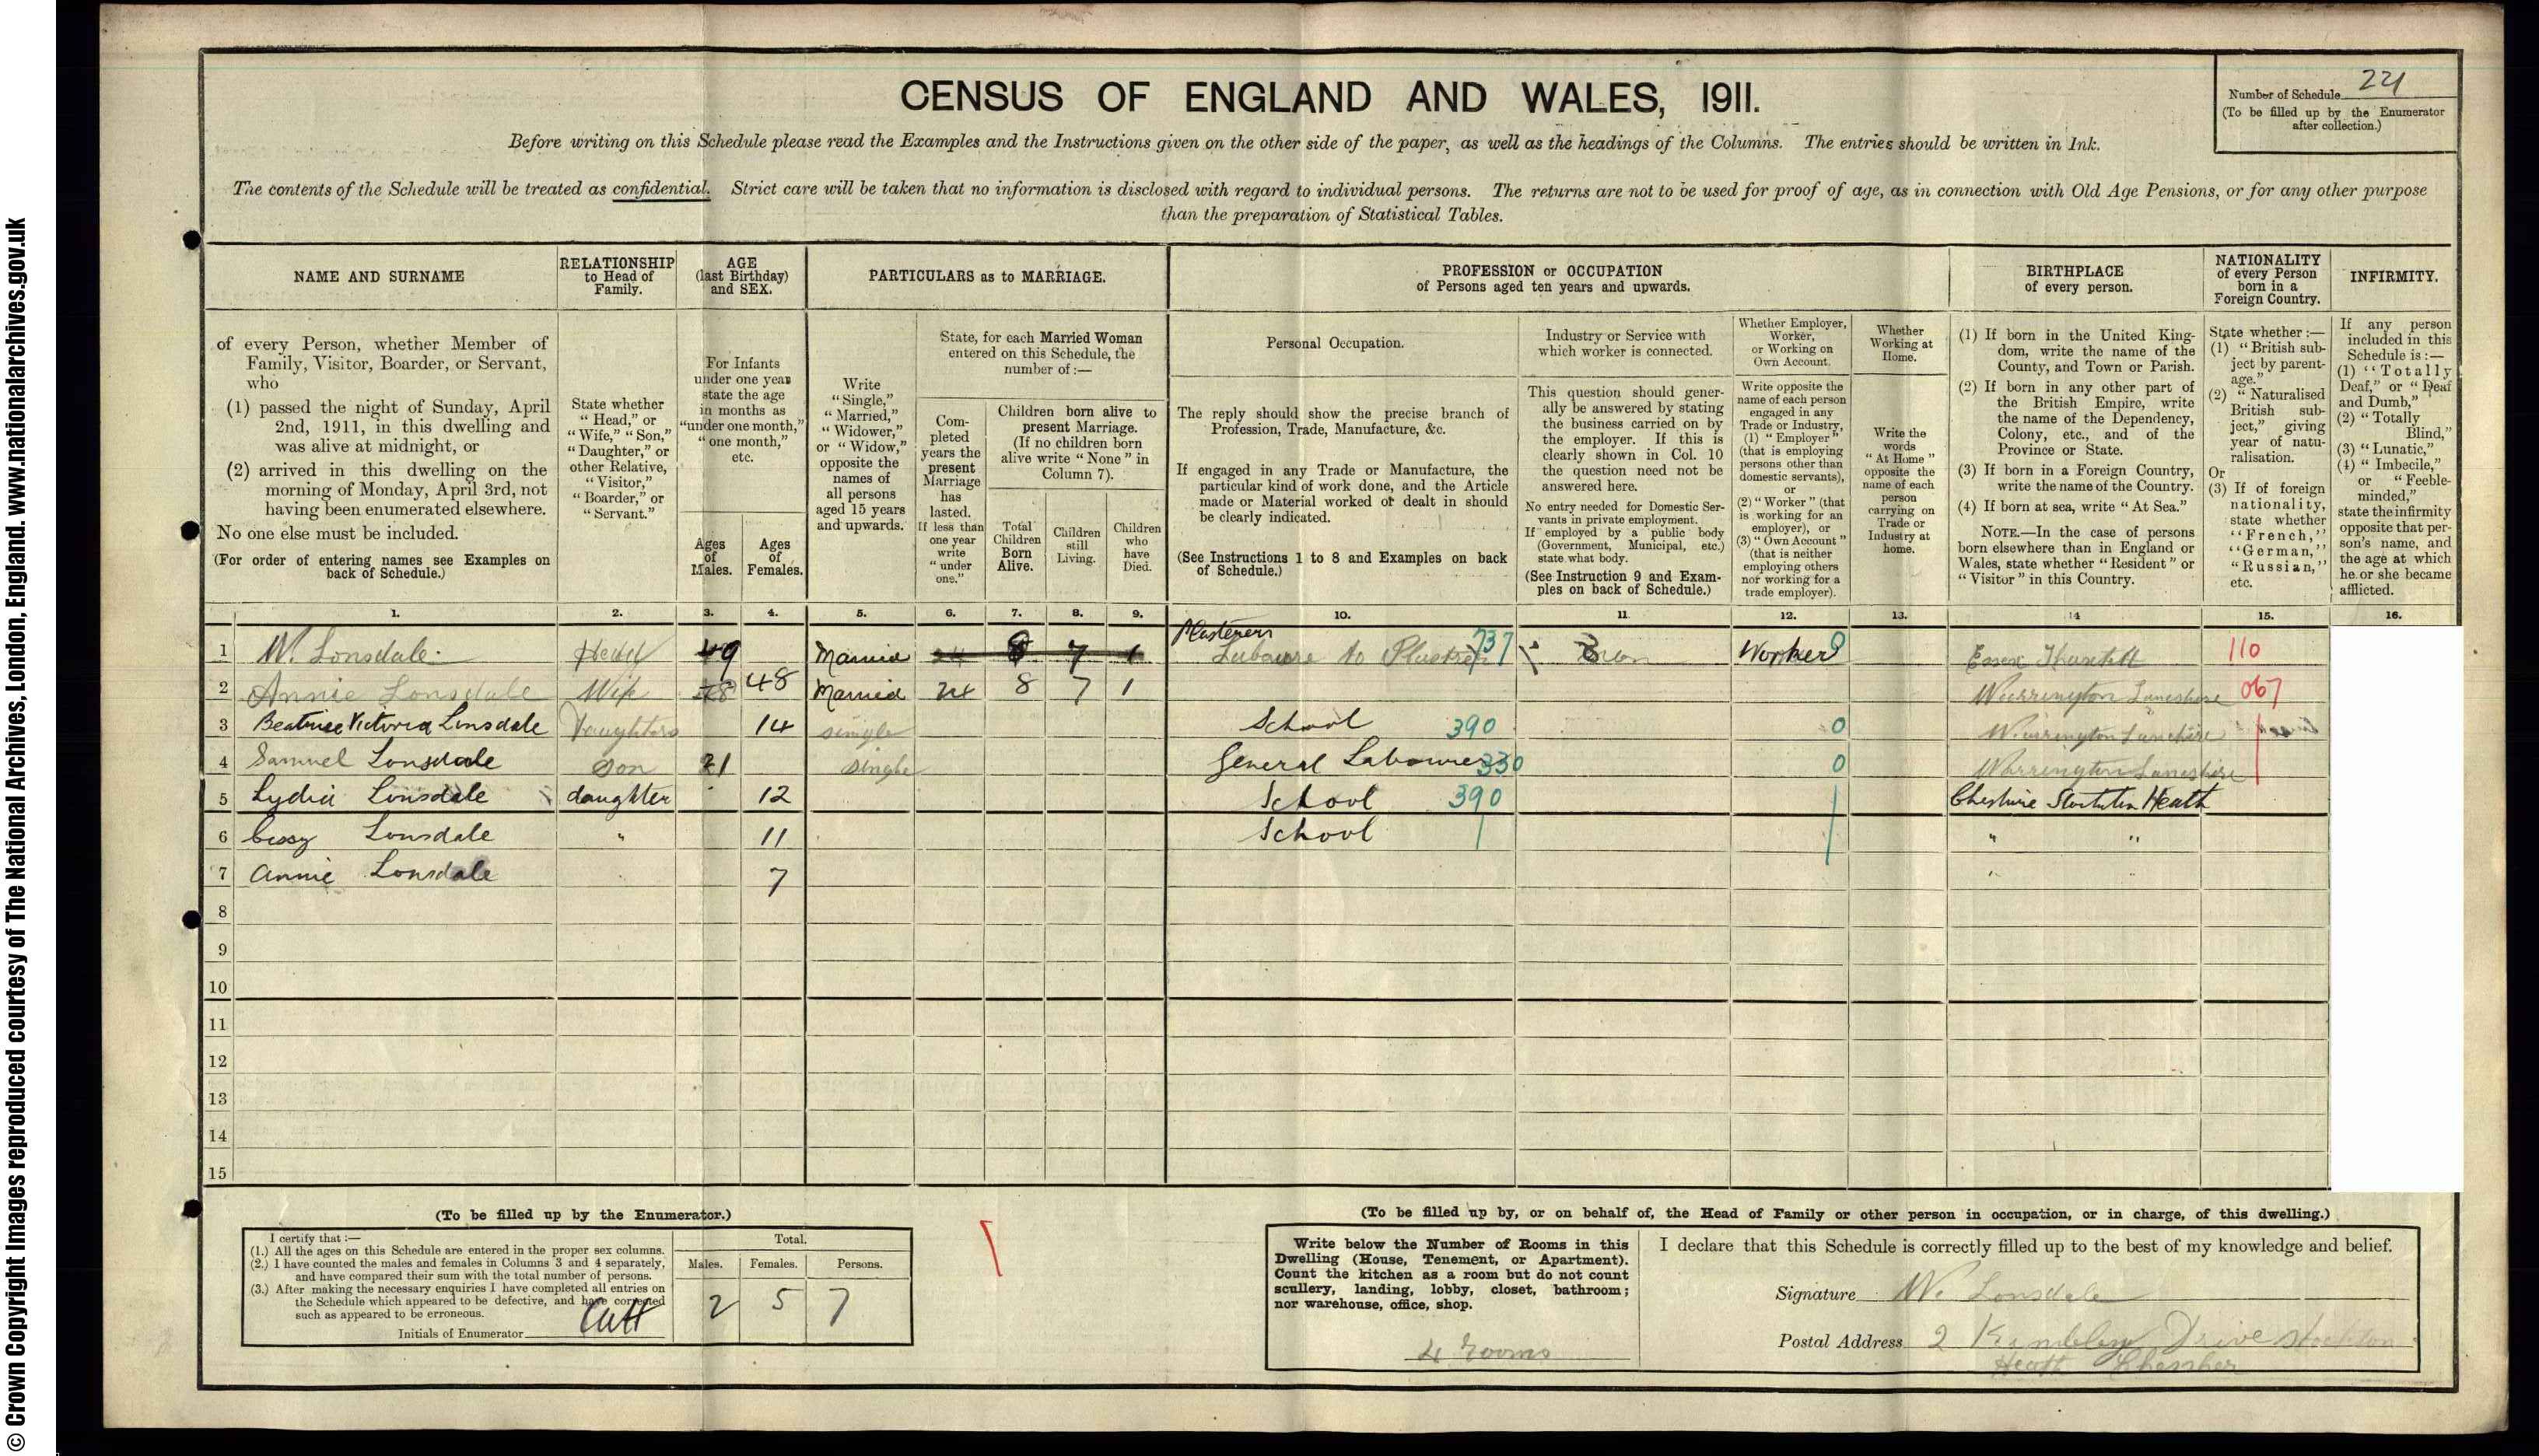 © Crown Copyright Images reproduced courtesy of The National Archives, London, England. www.nationalarchives.gov.uk
CENSUS OF ENGLAND AND WALES, 1911.
Number of Schedule 221
(To be filled up by the Enumerator
after collection.)
Before writing on this Schedule please read the Examples and the Instructions given on the other side of the paper, as well as the headings of the Columns. The entries should be written in Ink.
The contents of the Schedule will be treated as confidential. Strict care will be taken that no information is disclosed with regard to individual persons. The returns are not to be used for proof of age, as in connection with Old Age Pensions, or for any other purpose
than the preparation of Statistical Tables.
NAME AND SURNAME
of every Person, whether Member of
Family, Visitor, Boarder, or Servant,
who
(1) passed the night of Sunday, April
2nd, 1911, in this dwelling and
was alive at midnight, or
(2) arrived in this dwelling on the
morning of Monday, April 3rd, not
having been enumerated elsewhere.
No one else must be included.
(For order of entering names see Examples on
back of Schedule.)
RELATIONSHIP
to Head of
Family.
State whether
"Head," or
"Wife," "Son,"
"Daughter," or
other Relative,
"Visitor,"
"Boarder," or
"Servant."
AGE
(last Birthday)
and SEX.
For Infants
under one year
state the age
in months as
"under one month,"
"one month,"
etc.
Ages
of
Males.
Ages
of
Females.
PARTICULARS as to MARRIAGE.
Write
"Single,"
"Married,"
"Widower,"
or "Widow,"
opposite the
names of
all persons
aged 15 years
and upwards.
State, for each Married Woman
entered on this Schedule, the
number of :—
Com-
pleted
years the
present
Marriage
has
lasted.
If less than
one year
write
"under
one."
Children born alive to
present Marriage.
(If no children born
alive write "None" in
Column 7).
Total
Children
Born
Alive.
Children
still
Living.
Children
who
have
Died.
PROFESSION or OCCUPATION
of Persons aged ten years and upwards.
Personal Occupation.
The reply should show the precise branch of
Profession, Trade, Manufacture, &c.
If engaged in any Trade or Manufacture, the
particular kind of work done, and the Article
made or Material worked or dealt in should
be clearly indicated.
(See Instructions 1 to 8 and Examples on back
of Schedule.)
Industry or Service with
which worker is connected.
This question should gener-
ally be answered by stating
the business carried on by
the employer. If this is
clearly shown in Col. 10
the question need not be
answered here.
No entry needed for Domestic Ser-
vants in private employment.
If employed by a public body
(Government, Municipal, etc.)
state what body.
(See Instruction 9 and Exam-
ples on back of Schedule.)
Whether Employer,
Worker,
or Working on
Own Account.
Write opposite the
name of each person
engaged in any
Trade or Industry,
(1) "Employer"
(that is employing
persons other than
domestic servants),
or
(2) "Worker" (that
is working for an
employer), or
(3) "Own Account"
(that is neither
employing others
nor working for a
trade employer).
Whether
Working at
Home.
Write the
words
"At Home"
opposite the
name of each
person
carrying on
Trade or
Industry at
home.
BIRTHPLACE
of every person.
(1) If born in the United King-
dom, write the name of the
County, and Town or Parish.
(2) If born in any other part of
the British Empire, write
the name of the Dependency,
Colony, etc., and of the
Province or State.
(3) If born in a Foreign Country,
write the name of the Country.
(4) If born at sea, write "At Sea."
NOTE.—In the case of persons
born elsewhere than in England or
Wales, state whether "Resident" or
"Visitor" in this Country.
NATIONALITY
of every Person
born in a
Foreign Country.
State whether :—
(1) "British sub-
ject by parent-
age."
(2) "Naturalised
British sub-
ject," giving
year of natu-
ralisation.
Or
(3) If of foreign
nationality,
state whether
"French,"
"German,"
"Russian,"
etc.
INFIRMITY.
If any person
included in this
Schedule is :—
(1) "Totally
Deaf," or "Deaf
and Dumb,"
(2) "Totally
Blind,"
(3) "Lunatic,"
(4) "Imbecile,"
or "Feeble-
minded,"
state the infirmity
opposite that per-
son's name, and
the age at which
he or she became
afflicted.
1. 2. 3. 4. 5. 6. 7. 8. 9. 10. 11. 12. 13. 14 15. 16.
Plasterers
1 W. Lonsdale. Head 49 Married 24 8 7 1 Labourer to Plasterer 737 Worker 0 Essex 110
2 Annie Lonsdale Wife 48 48 Married 24 8 7 1 Warrington Lancshire 067
3 Beatrice Victoria Lonsdale Daughter 14 single School 390 0 Warrington Lanchire
4 Samuel Lonsdale Son 21 single General Labourer 330 0 Warrington Lancshire
5 Lydia Lonsdale daughter 12 School 390 Cheshire Stockton Heath
6 Cissy Lonsdale " 11 School " "
7 Annie Lonsdale 7
8
9
10
11
12
13
14
15
(To be filled up by the Enumerator.)
I certify that :—
(1.) All the ages on this Schedule are entered in the proper sex columns.
(2.) I have counted the males and females in Columns 3 and 4 separately,
and have compared their sum with the total number of persons.
(3.) After making the necessary enquiries I have completed all entries on
the Schedule which appeared to be defective, and have corrected
such as appeared to be erroneous.
Initials of Enumerator
Total.
Males. Females. Persons.
2 5 7
(To be filled up by, or on behalf of, the Head of Family or other person in occupation, or in charge, of this dwelling.)
Write below the Number of Rooms in this
Dwelling (House, Tenement, or Apartment).
Count the kitchen as a room but do not count
scullery, landing, lobby, closet, bathroom;
nor warehouse, office, shop.
4 rooms
I declare that this Schedule is correctly filled up to the best of my knowledge and belief.
Signature W. Lonsdale
Postal Address 2 Drive Stockton
Heath